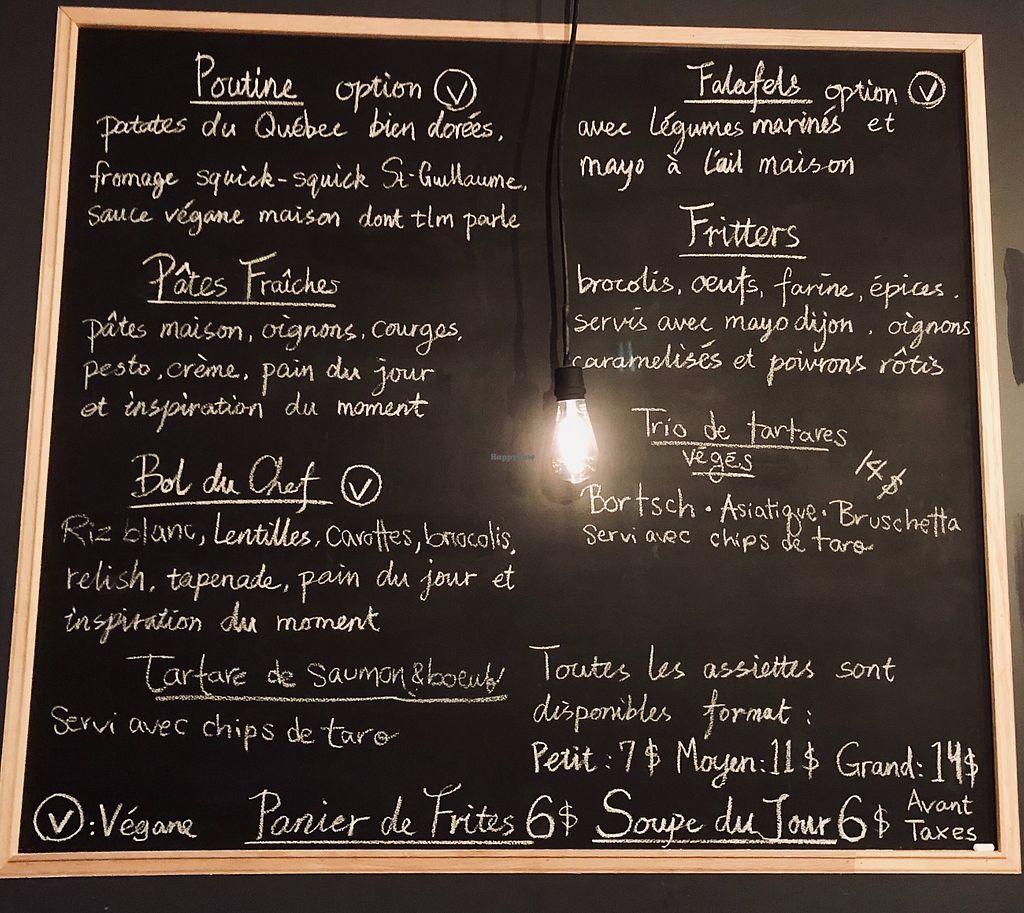 Poutine option Ⓥ
patates du Québec bien dorées,
fromage squick-squick St-Guillaume,
sauce végane maison dont tlm parle
Pâtes Fraîches
pâtes maison, oignons, courges,
pesto, crème, pain du jour
et inspiration du moment
Bol du Chef Ⓥ
Riz blanc, Lentilles, carottes, brocolis,
relish, tapenade, pain du jour et
inspiration du moment
Tartare de Saumon & boeuf
Servi avec chips de taro
Ⓥ: Végane
Falafels option Ⓥ
avec légumes marinés et
mayo à l'ail maison
Fritters
brocolis, œufs, farine, épices.
servis avec mayo dijon, oignons
caramelisés et poivrons rôtis
Trio de tartares
végés
14$
Bortsch • Asiatique • Bruschetta
Servi avec chips de taro
Toutes les assiettes sont
disponibles format :
Petit : 7$ Moyen: 11$ Grand: 14$
Panier de Frites 6$ Soupe du Jour 6$ Avant
Taxes
HappyCow